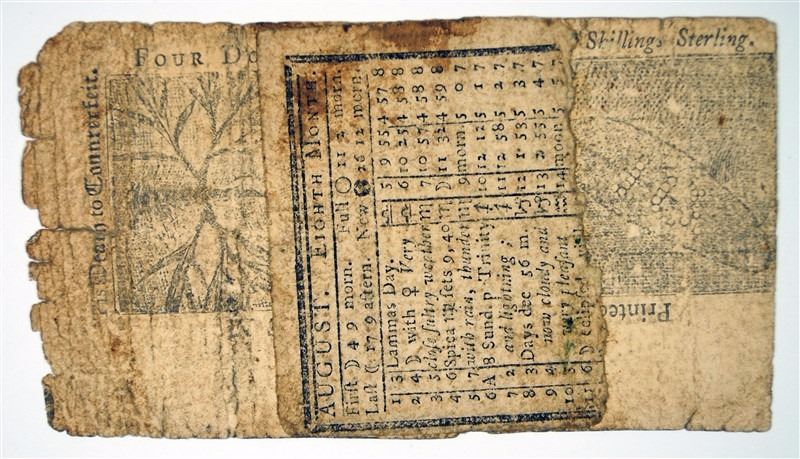 FOUR
Shillings Sterling.
Death to Counterfeit.
Printed
AUGUST. EIGHTH MONTH.
First D 4 9 morn. Full ○ 11 2 morn.
Last ☾ 17 9 aftern. New ● 26 12 morn.
1 3 Lammas Day. 5 9 55 4 57 8
2 4 D with ♀ Very 6 10 25 4 58 8
3 5 close sultry weather ♏ 7 10 57 4 58 8
4 6 Spica ♍ sets 9, 40 ♏ D 11 32 4 59 8
5 7 with rain, thunder ♏ 9 morn. 5 0 7
6 A 8 Sund. p Trinity ♐ 10 12 12 5 1 7
7 2 and lightning; ♐ 11 12 58 5 2 7
8 3 Days dec 56 m. ♑ 12 1 53 5 3 7
9 4 now cloudy and ♑ 13 2 55 5 4 7
10 5 pleasant 14 moon 5 5 7
11 6 D eclipsed